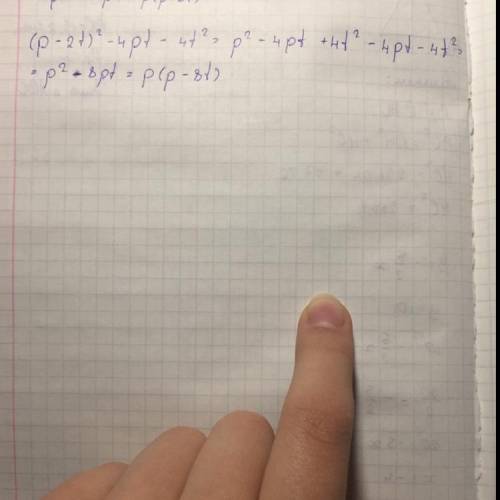 (p-2t)² -4pt - 4t² = p² - 4pt + 4t² - 4pt - 4t² =
= p² - 8pt = p(p-8t)